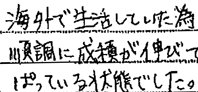 海外で生活していた為
順調に成積が伸びて
ぱっている状態でした。